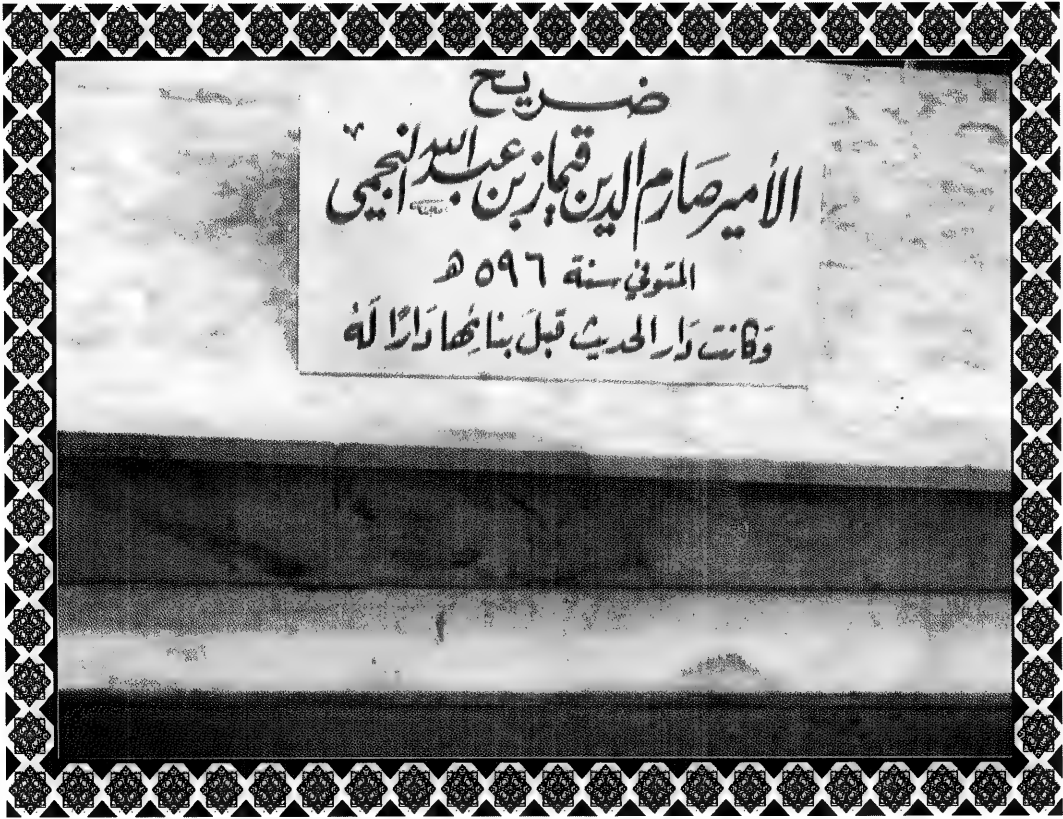 ضريح
الأمير صَارم الدين قيماز بن عبد الله النجمي
المتوفي سنة ٥٩٦ هـ
وَكانت دَار الحديث قبلَ بنائِها دَارًا لَهُ